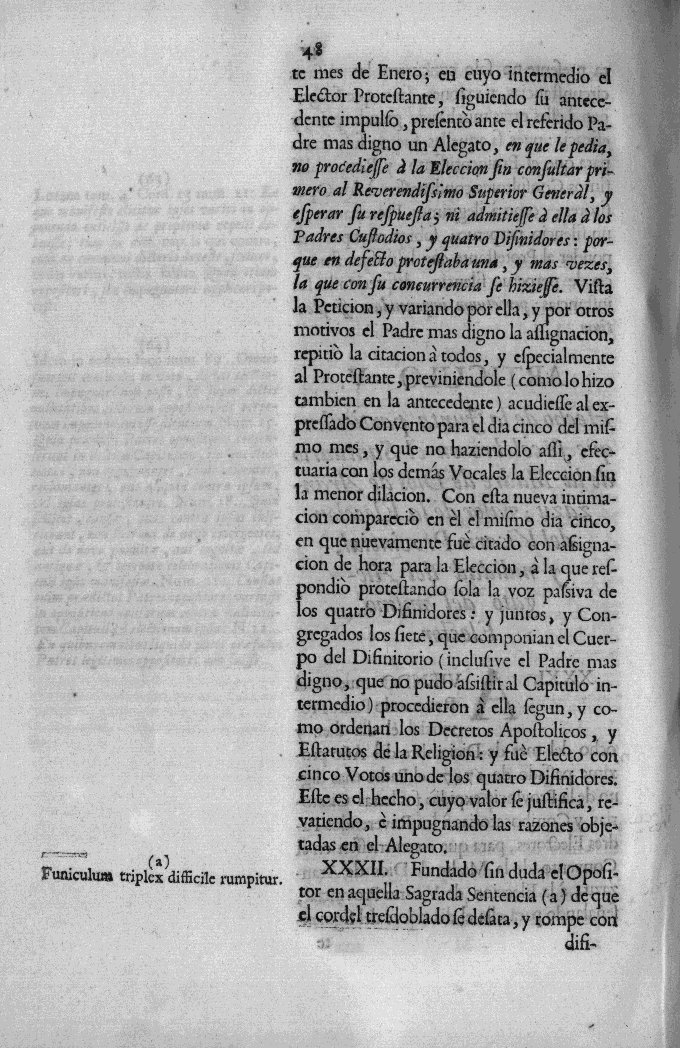 48
te mes de Enero; en cuyo intermedio el
Elector Protestante, siguiendo su antece-
dente impulso, presentò ante el referido Pa-
dre mas digno un Alegato, en que le pedia,
no procediesse à la Eleccion sin consultar pri-
mero al Reverendissimo Superior General, y
esperar su respuesta; ni admitiesse à ella à los
Padres Custodios, y quatro Difinidores: por-
que en defecto protestaba una, y mas vezes,
la que con su concurrencia se hiziesse. Vista
la Peticion, y variando por ella, y por otros
motivos el Padre mas digno la assignacion,
repitiò la citacion à todos, y especialmente
al Protestante, previniendole (como lo hizo
tambien en la antecedente) acudiesse al ex-
pressado Convento para el dia cinco del mis-
mo mes, y que no haziendolo assi, efec-
tuaria con los demás Vocales la Eleccion sin
la menor dilacion. Con esta nueva intima-
cion compareciò en èl el mismo dia cinco,
en que nuevamente fuè citado con assigna-
cion de hora para la Eleccion, à la que res-
pondiò protestando sola la voz passiva de
los quatro Difinidores: y juntos, y Con-
gregados los siete, que componian el Cuer-
po del Difinitorio (inclusive el Padre mas
digno, que no pudo assistir al Capitulo in-
termedio) procedieron à ella segun, y co-
mo ordenan los Decretos Apostolicos, y
Estatutos de la Religion: y fuè Electo con
cinco Votos uno de los quatro Difinidores.
Este es el hecho, cuyo valor se justifica, re-
vatiendo, è impugnando las razones obje-
tadas en el Alegato.
XXXII. Fundado sin duda el Oposi-
tor en aquella Sagrada Sentencia (a) de que
el cordel tresdoblado se desata, y rompe con
difi-
(a)
Funiculum triplex difficile rumpitur.